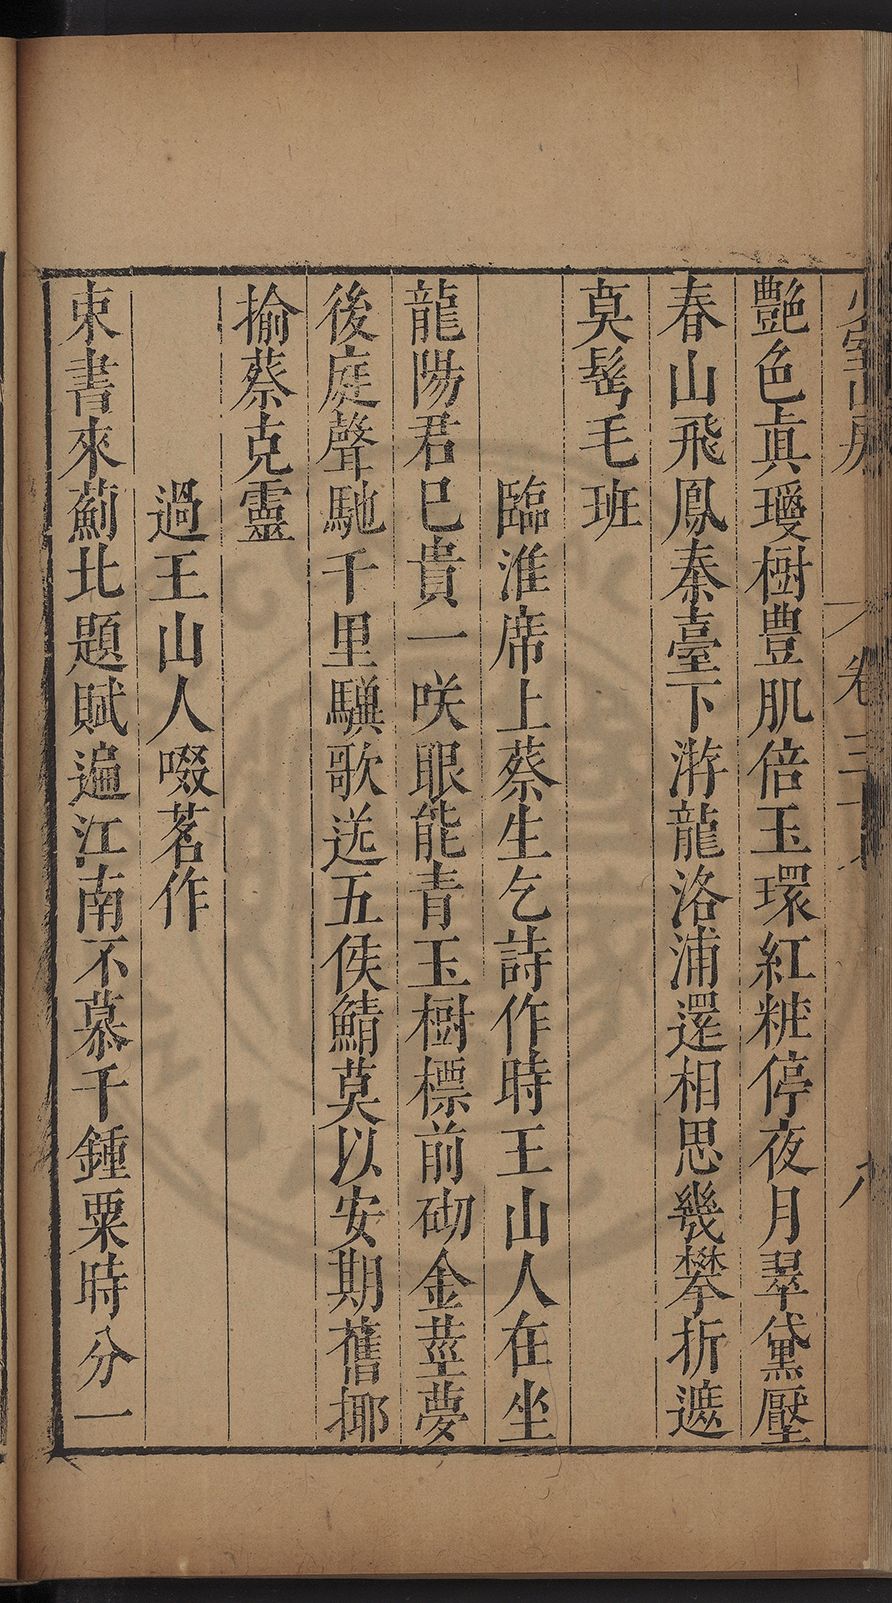 艷色真璦樹豊肌倍玉環紅粧停夜月翠黛壓
春山飛鳳秦臺下游龍洛浦還相思幾攀折遮
莫髩毛班
臨淮席上蔡生乞詩作時王山人在坐
龍陽君巳貴一咲眼能青玉樹標前砌金莖夢
後庭聲馳千里驥歌送五侯鯖莫以安期舊揶
揄蔡克靈
過王山人啜茗作
束書來薊北題賦遍江南不慕千鍾粟時分一